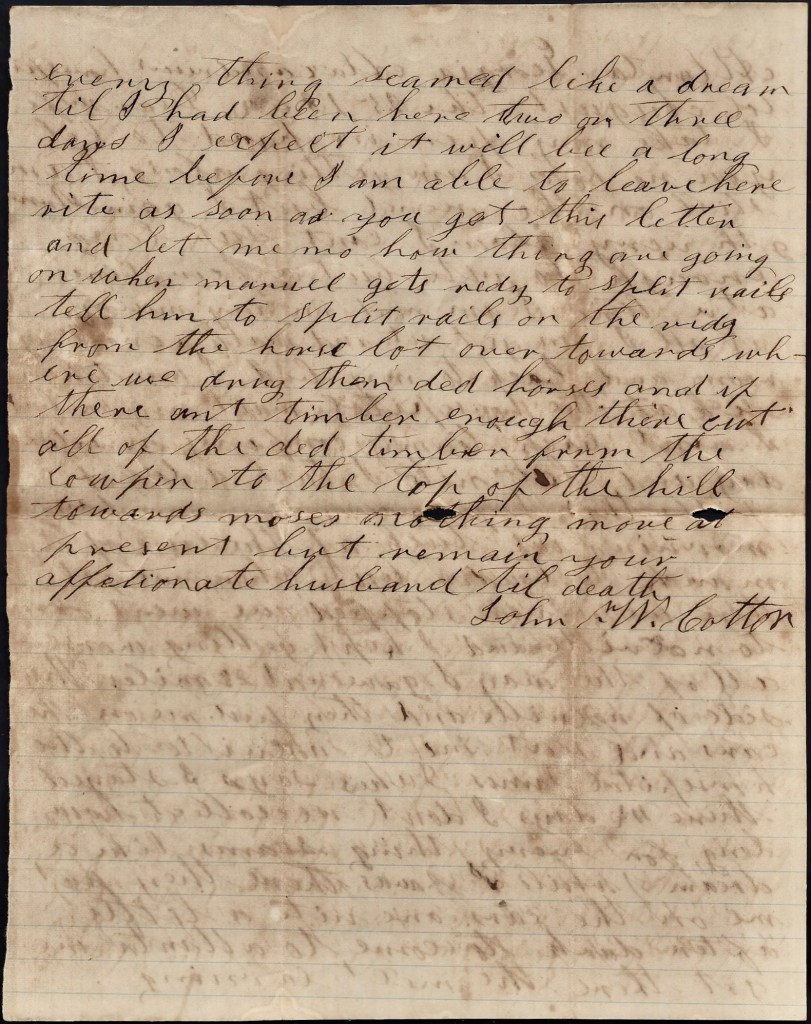 every thing seamed like a dream
til I had been here two or three
days I expect it will bee a long
time before I am able to leave here
rite as soon as you get this letter
and let me no how thing are going
on when manuel gets redy to split rails
tell him to split rails on the ridg
from the horse lot over towards wh-
ere we drug them ded horses and if
there ant timber enough there cut
all of the ded timber from the
cowpen to the top of the hill
towards moses nothing more at
present but remain your
affectionate husband til death
John W. Cotton